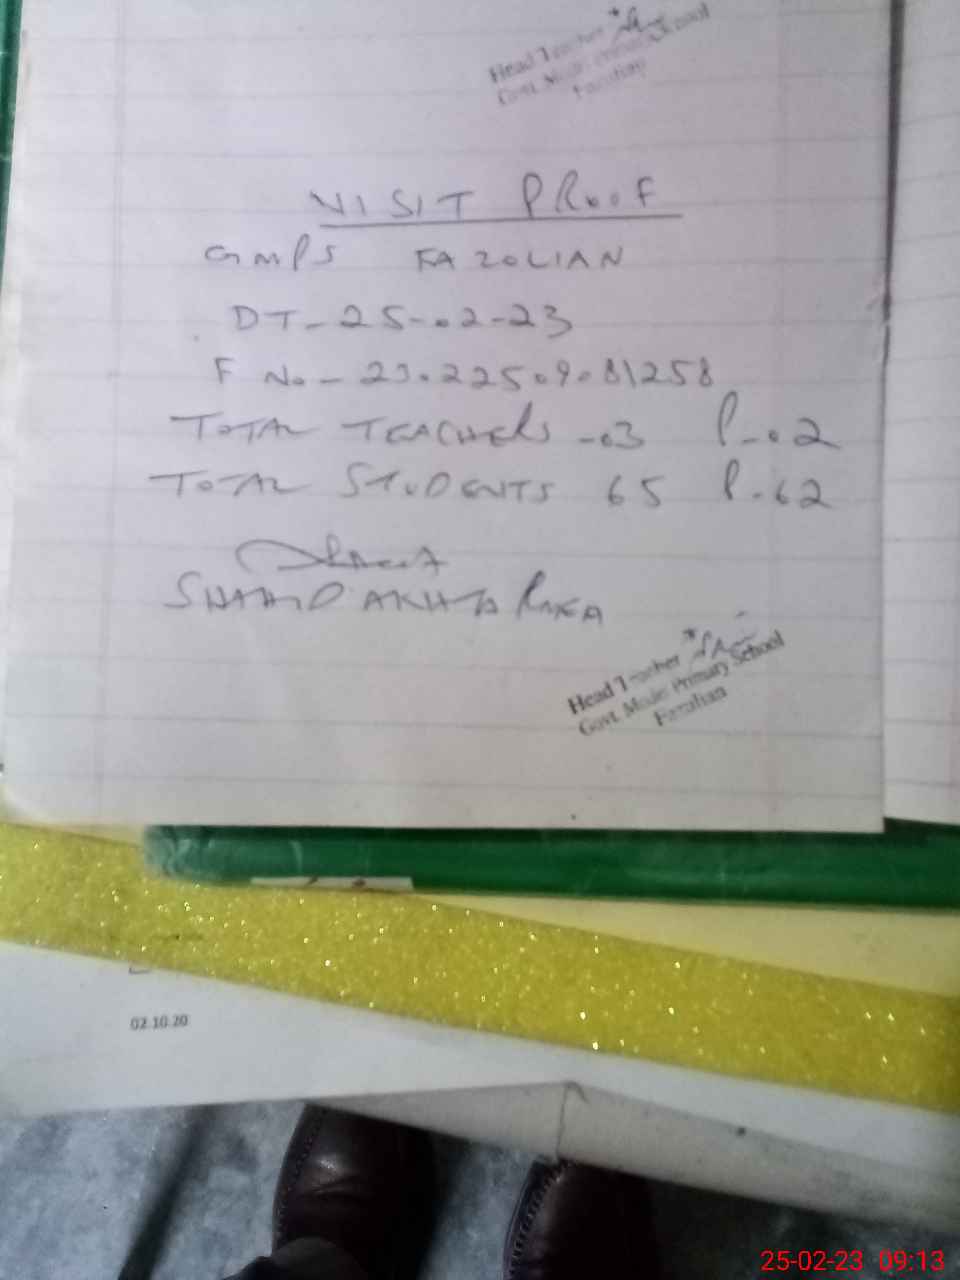 Head Teacher
Govt. Model Primary School
Fazalian
VISIT PROOF
GMPS FAZOLIAN
DT-25-02-23
F No-23.22509.81258
TOTAL TEACHERS -03 P-02
TOTAL STUDENTS 65 P-62
SHAHID AKHTAR RAZA
Head Teacher
Govt. Model Primary School
Fazalian
02.10.20
25-02-23 09:13